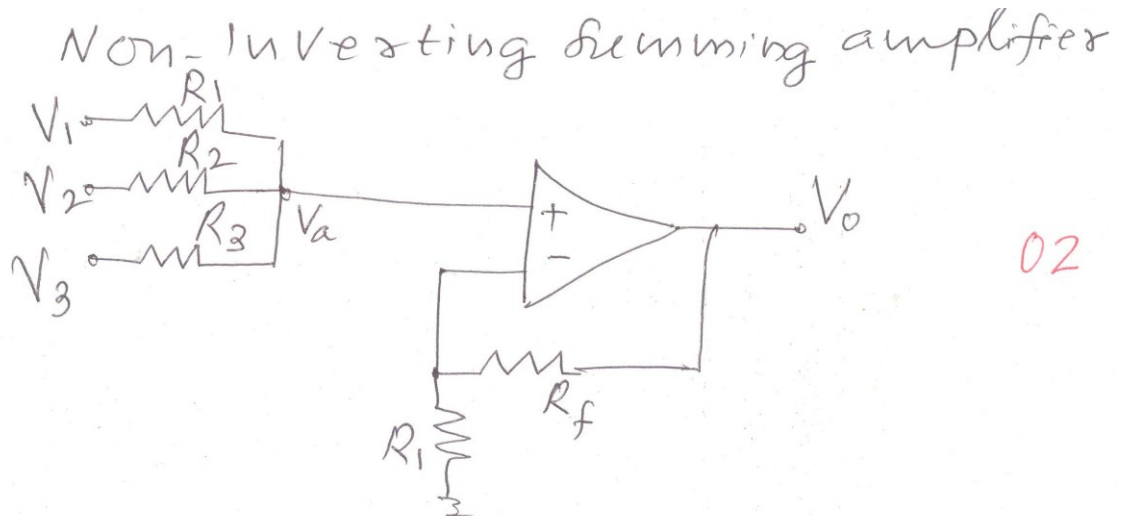 Non-Inverting Summing amplifier
R1
V1
R2
V2
R3
Va
V3
+
-
Vo
02
Rf
R1